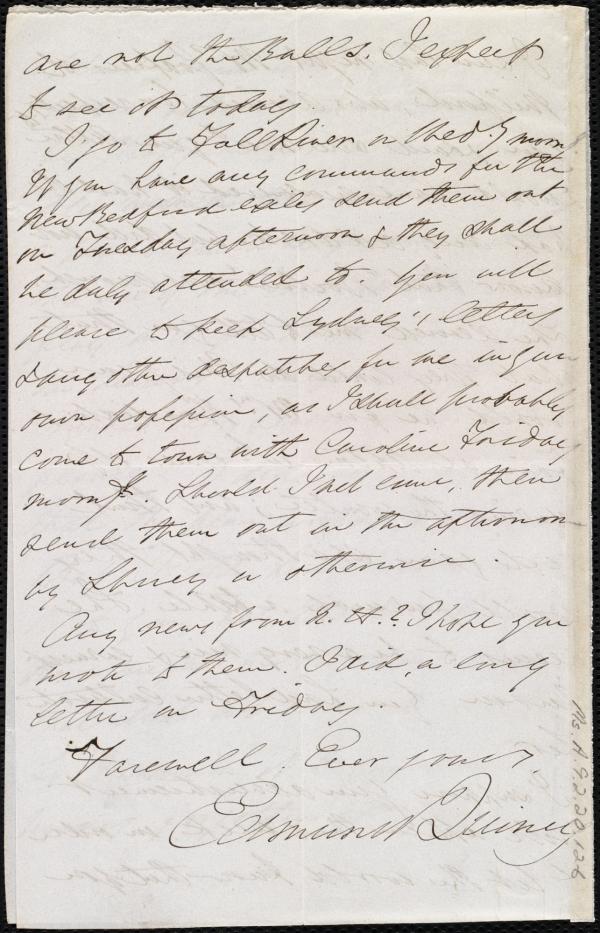 are not the Balls. I expect
to see it today.
I go to Fall River on Wed.y morn.
If you have any commands for the
New Bedford exiles send them out
on Tuesday afternoon & they shall
be duly attended to. You will
please to keep Sydney's letters
& any other despatches for me in your
own possession, as I shall probably
come to town with Caroline Friday
morng. Should I not come, then
send them out in the afternoon
by Storey or otherwise.
Any news from N. H.? I hope you
wrote to them. I did, a long
letter on Friday.
Farewell. Ever yours
Edmund Quincy
Ms. A. 9. 2. 20. 126